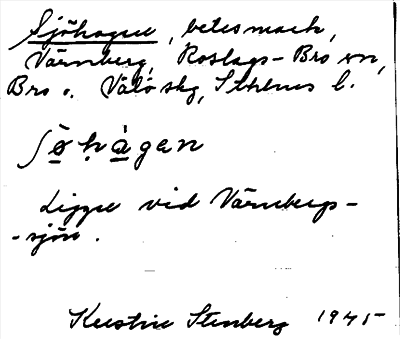 Sjöhagen, betesmark,
Värnberg, Roslags-Bro sn,
Bro o. Vätö skg, Sthlms l.
ʃö̀hàgen
Ligger vid Värnbergs-
-sjön.
Kerstin Stenberg 1945